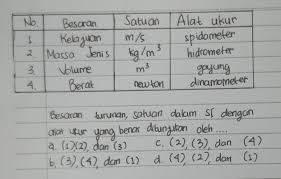 No. Besaran Satuan Alat ukur
1 Kelajuan m/s spidometer
2 Massa Jenis kg/m³ hidrometer
3. Volume m³ gayung
4. Berat newton dinamometer
Besaran turunan, satuan dalam SI dengan
alat ukur yang benar ditunjukan oleh ....
a. (1)(2), dan (3) c. (2), (3), dan (4)
b. (3), (4), dan (1) d. (4), (2), dan (1)